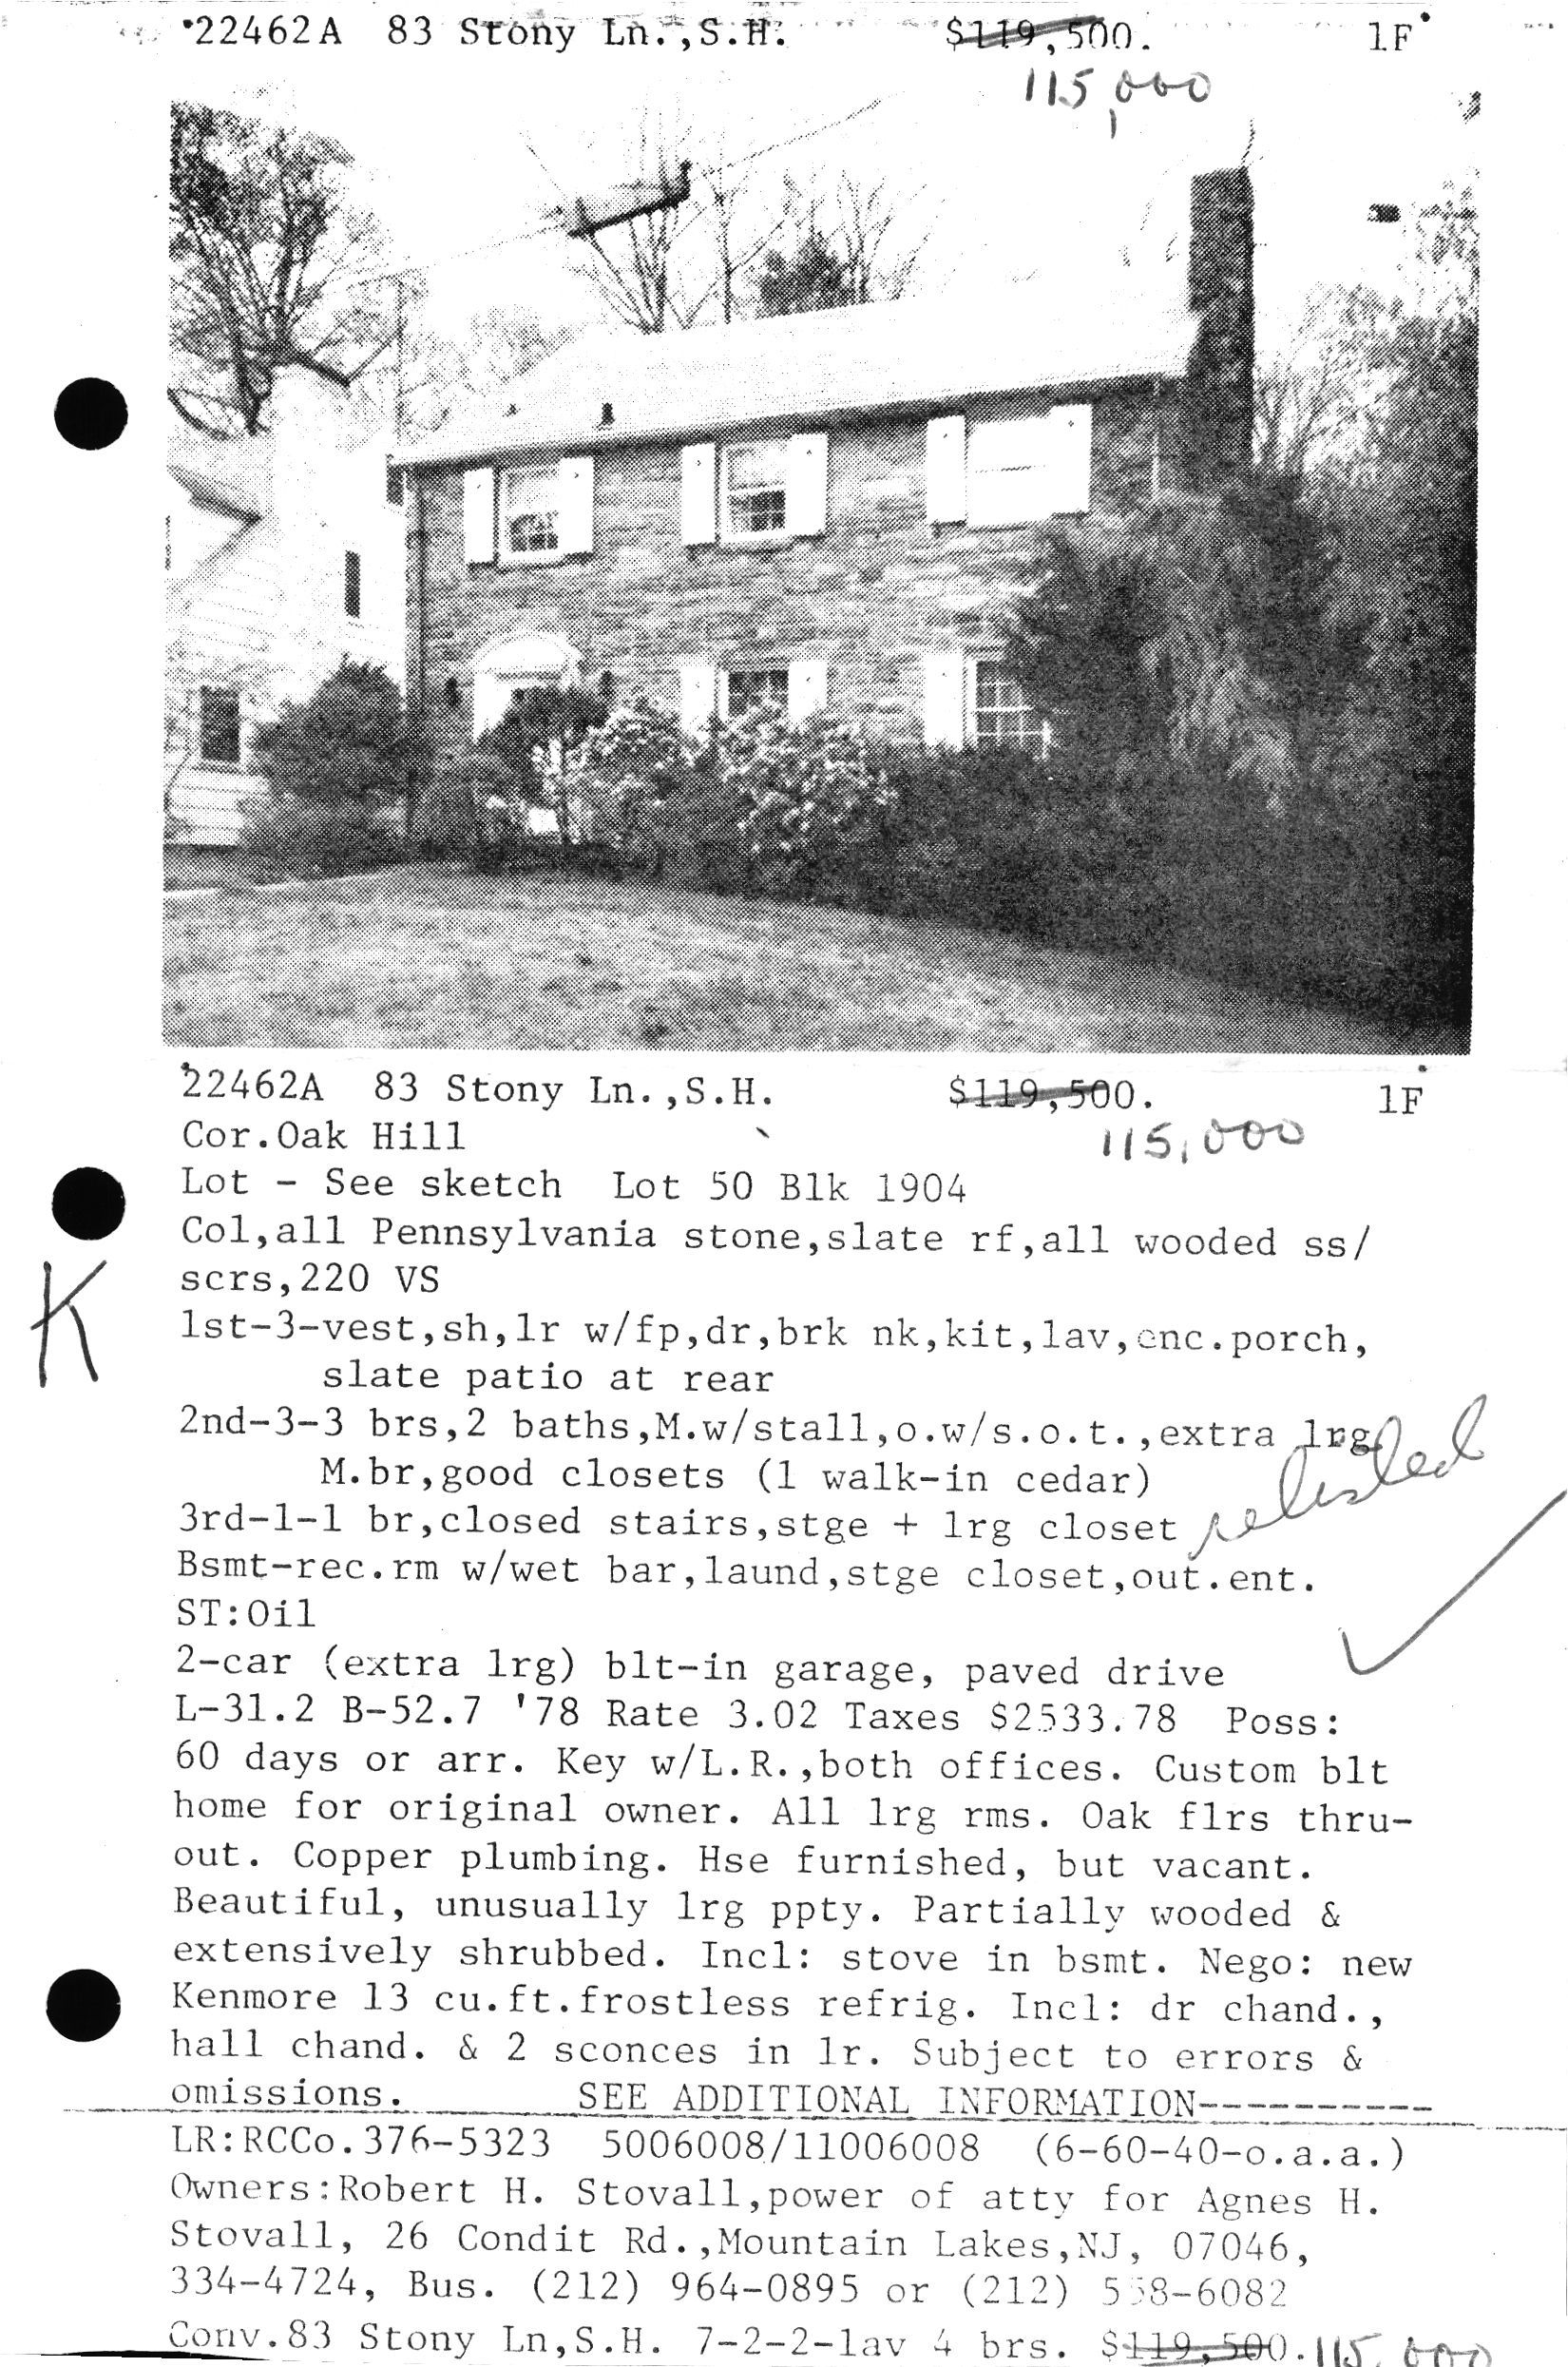 22462A 83 Stony Ln.,S.H. $119,500. 1F
115,000
22462A 83 Stony Ln.,S.H. $119,500. 1F
Cor.Oak Hill 115,000
Lot - See sketch Lot 50 Blk 1904
Col,all Pennsylvania stone,slate rf,all wooded ss/
scrs,220 VS
K
1st-3-vest,sh,lr w/fp,dr,brk nk,kit,lav,enc.porch,
slate patio at rear
2nd-3-3 brs,2 baths,M.w/stall,o.w/s.o.t.,extra lrg
M.br,good closets (1 walk-in cedar)
relisted
3rd-1-1 br,closed stairs,stge + lrg closet
Bsmt-rec.rm w/wet bar,laund,stge closet,out.ent.
ST:Oil
2-car (extra lrg) blt-in garage, paved drive
L-31.2 B-52.7 '78 Rate 3.02 Taxes $2533.78 Poss:
60 days or arr. Key w/L.R.,both offices. Custom blt
home for original owner. All lrg rms. Oak flrs thru-
out. Copper plumbing. Hse furnished, but vacant.
Beautiful, unusually lrg ppty. Partially wooded &
extensively shrubbed. Incl: stove in bsmt. Nego: new
Kenmore 13 cu.ft.frostless refrig. Incl: dr chand.,
hall chand. & 2 sconces in lr. Subject to errors &
omissions. SEE ADDITIONAL INFORMATION----------
LR:RCCo.376-5323 5006008/11006008 (6-60-40-o.a.a.)
Owners:Robert H. Stovall,power of atty for Agnes H.
Stovall, 26 Condit Rd.,Mountain Lakes,NJ, 07046,
334-4724, Bus. (212) 964-0895 or (212) 558-6082
Conv.83 Stony Ln,S.H. 7-2-2-lav 4 brs. $119,500. 115,000